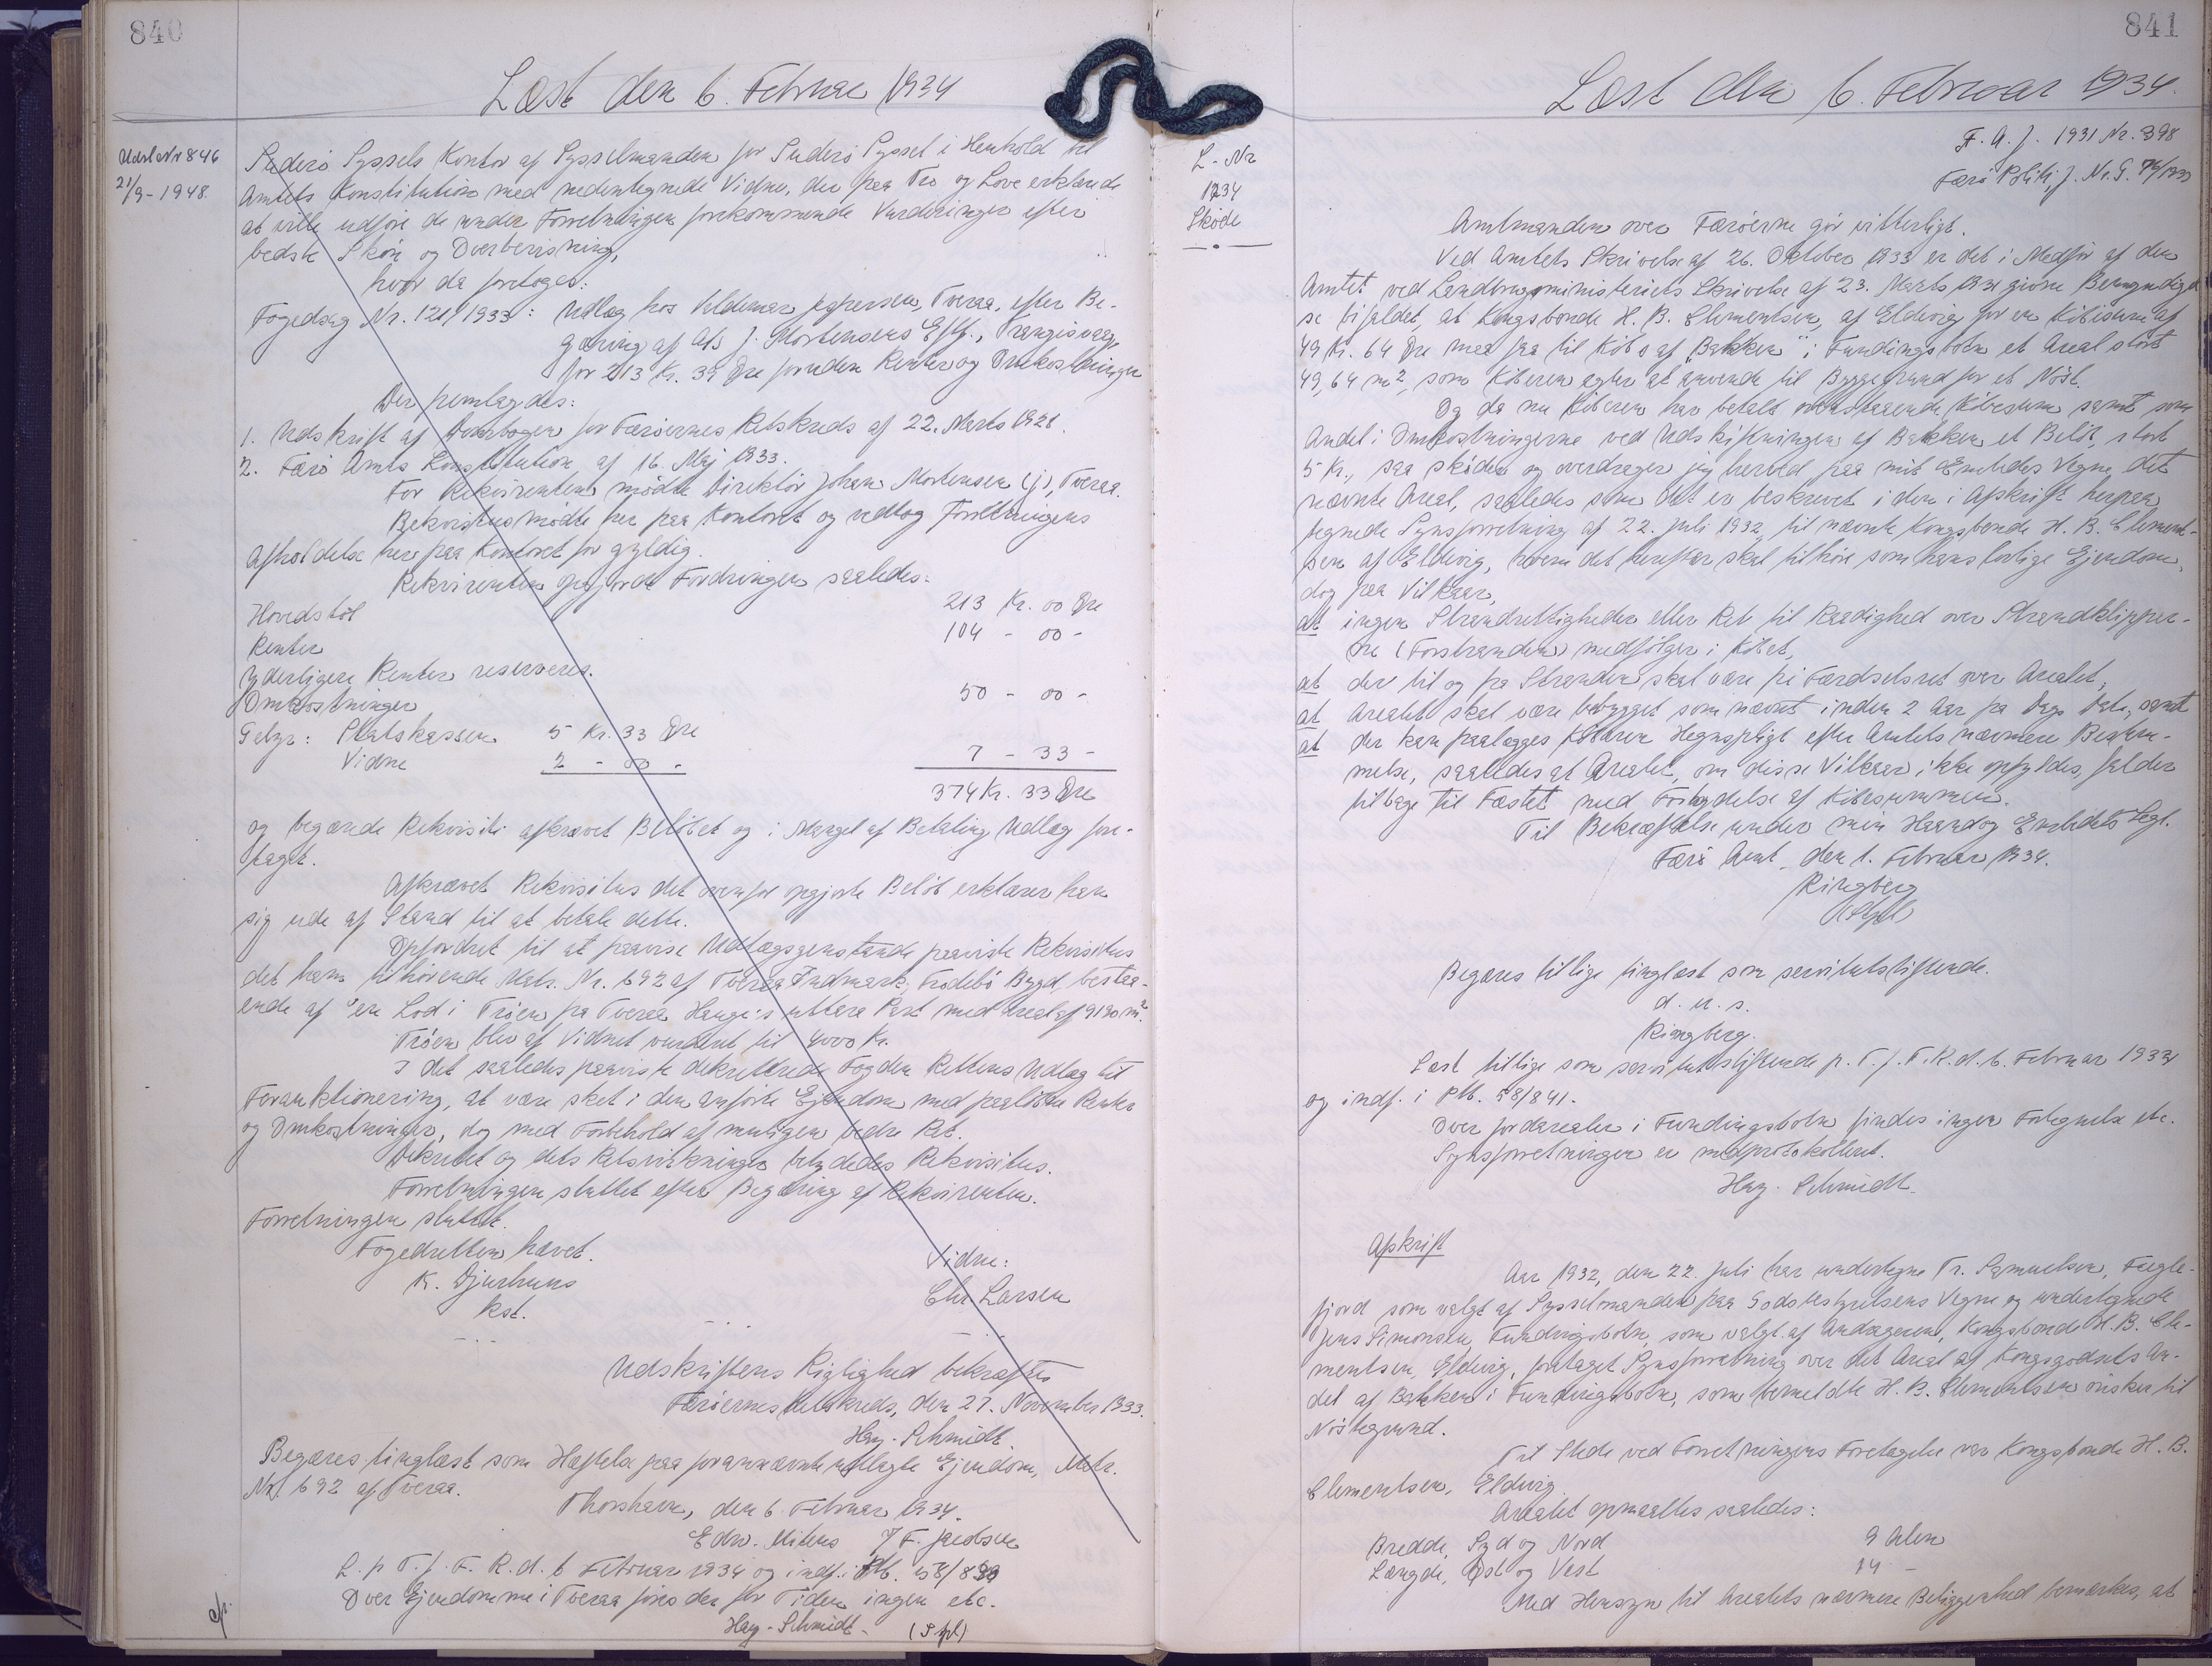 840
Læst den 6. Februar 1934
Udsl. Nr. 846
21/9 - 1948.
Suderö Syssels Kontor af Sysselmanden for Suderö Syssel i Henhold til
Amtets Konstitution med nedentegnede Vidne, der paa Tro og Love erklærede
at ville udföre de under Forretningen forekommende Vurderinger efter
bedste Skön og Overbevisning,
hvor da foretoges:
Fogedsag Nr. 121/1933: Udlæg hos Valdemar Jespersen, Tveraa, efter Be-
gæring af A/S J. Mortensens Eftf., Trangisvaag,
for 213 Kr. 39 Øre foruden Renter og Omkostninger
Der fremlagdes:
1. Udskrift af Dombogen for Færöernes Retskreds af 22. Marts 1928.
2. Færö Amts Konstitution af 16. Maj 1933.
For Rekvirenten mödte Direktör Johan Mortensen (j), Tveraa.
Rekvisitus mödte her paa Kontoret og vedtog Forretningens
Afholdelse her paa Kontoret for gyldig.
Rekvirenten opgjorde Fordringen saaledes:
Hovedstol 213 Kr. 00 Øre
Renter 104 - 00 -
Yderligere Renter reserveres.
Omkostninger 50 - 00 -
Gebyr: Statskassen 5 Kr. 33 Øre
Vidne 2 - 00 - 7 - 33 -
374 Kr. 33 Øre
og begærede Rekvisiti afkrævet Belöbet og i Mangel af Betaling Udlæg fore-
taget.
Afkrævet Rekvisitus det ovenfor opgjorte Belöb erklærer han
sig ude af Stand til at betale dette.
Opfordret til at paavise Udlægsgenstande paaviste Rekvisitus
det ham tilhörende Matr. Nr. 692 af Tveraa Indmark, Frodebö Bygd, bestaa-
ende af "en Lod i Tröen fra Tveraa Hauge's uttare Part med Areal af 9190 m².
Tröen blev af Vidnet vurderet til 4000 Kr.
I det saaledes paaviste dekreterede Fogden Rettens Udlæg til
Foranktionering, at være sket i den anförte Ejendom med paalöbne Renter
og Omkostninger, dog med Forbehold af muligen bedre Ret.
Dekretet og dets Retsvirkninger betydedes Rekvisitus.
Forretningen sluttet efter Begæring af Rekvirenten.
Forretningen sluttet.
Fogedretten hævet.
Vidne:
K. Djurhuus
Chr. Larsen
kst.
Udskriftens Rigtighed bekræftes
Færöernes Retskreds, den 27. November 1933.
Hay-Schmidt.
Begæres tinglæst som Hæftelse paa forannævnte udlagte Ejendom, Matr.
Nr. 692 af Tveraa.
Thorshavn, den 6. Februar 1934.
Edw. Mitens J F. Jacobsen
L. p T. f. F. R. d. 6 Februar 1934 og indf. i Ptb. 58/839
Over Ejendomme i Tveraa föres der for Tiden ingen etc.
Hay-Schmidt - (Sgl)
841
Læst den 6. Februar 1934.
L-Nr
1234
Sköde
F. A. J. 1931 Nr. 398
Færö Politi, J. Nr. G.
Amtmanden over Færöerne gör vitterligt.
Ved Amtets Skrivelse af 26. Oktober 1933 er det i Medför af den
Amtet ved Landbrugsministeriets Skrivelse af 23. Marts 1931 givne Bemyndigel
se bifaldet, at Kongsbonde H. B. Clementsen, af Eldevig for en Köbesum af
49 Kr. 64 Øre maa faa til Köbs af "Bakken" i Fundingsbotn et Areal stort
49,64 m², som Köberen agter at anvende til Byggegrund for et Nöst.
Og da nu Köberen har betalt ovenstaaende Köbesum samt som
Andel i Omkostningerne ved Udskiftningen af Bakken et Belöb, stort
5 Kr., saa sköder og overdrager jeg herved paa mit Embedes Vegne det
nævnte Areal, saaledes som det er beskrevet i den i Afskrift herpaa
tegnede Synsforretning af 22. Juli 1932, til nævnte Kongsbonde H. B. Clement-
sen af Eldevig, hvem det herefter skal tilhöre som hans lovlige Ejendom,
dog paa Vilkaar,
at ingen Strandrettigheder eller Ret til Raadighed over Strandklipper-
ne (Forstranden) medfölger i Köbet,
at der til og fra Stranden skal være fri Færdselsret over Arealet,
at Arealet skal være bebygget som nævnt inden 2 Aar fra Dags Dato, samt
at der kan paalægges Köberen Hegnspligt efter Amtets nærmere Bestem-
melse, saaledes at Arealet, om disse Vilkaar ikke opfyldes, falder
tilbage til Fæstet med Fortabelse af Köbesummen.
Til Bekræftelse under min Haand og Embedets Segl.
Færö Amt, den 1. Februar 1934.
Ringberg
(Sgl)
Begæres tillige tinglæst som servitutstiftende.
d. u. s.
Ringberg.
Læst tillige som servitutstiftende p. T. f. F. R. d. 6. Februar 1934
og indf. i Ptb. 58/841.
Over Jordarealer i Fundingsbotn findes ingen Fortegnelse etc.
Synsforretningen er medprotokolleret.
Hay-Schmidt.
Afskrift
Aar 1932, den 22. Juli har undertegnede Tr. Samuelsen, Fugle-
fjord som valgt af Sysselmanden paa Godsbestyrelsens Vegne og undertegnede
Jens Simonsen, Fundingsbotn, som valgt af Andrageren, Kongsbonde H. B. Cle-
mentsen, Eldevig, foretaget Synsforretning over det Areal af Kongsgodsets An-
del af Bakken i Fundingsbotn, som bemeldte H. B. Clementsen önsker til
Nöstegrund.
Til Stede ved Forretningens Foretagelse var Kongsbonde H. B.
Clementsen, Eldevig.
Arealet opmaaltes saaledes:
Bredde, Syd og Nord 9 Alen
Længde, Øst og Vest 14 -
Med Hensyn til Arealets nærmere Beliggenhed bemærkes, at